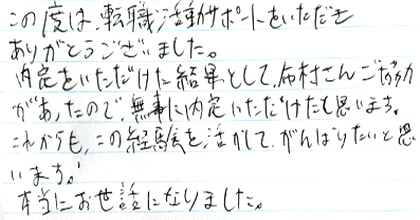 この度は、転職活動サポートをいただき
ありがとうございました。
内定をいただけた結果として、布村さんご協力
があったので、無事に内定いただけたも思います。
これからも、この経験を活かして、がんばりたいと思
います。
本当にお世話になりました。